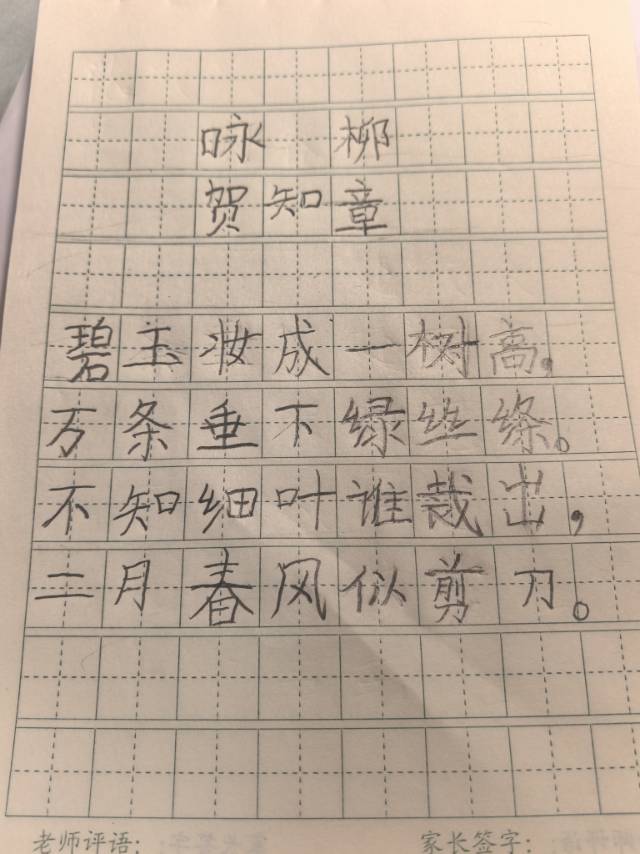 咏柳
贺知章
碧玉妆成一树高，
万条垂下绿丝绦。
不知细叶谁裁出，
二月春风似剪刀。
老师评语： 家长签字：